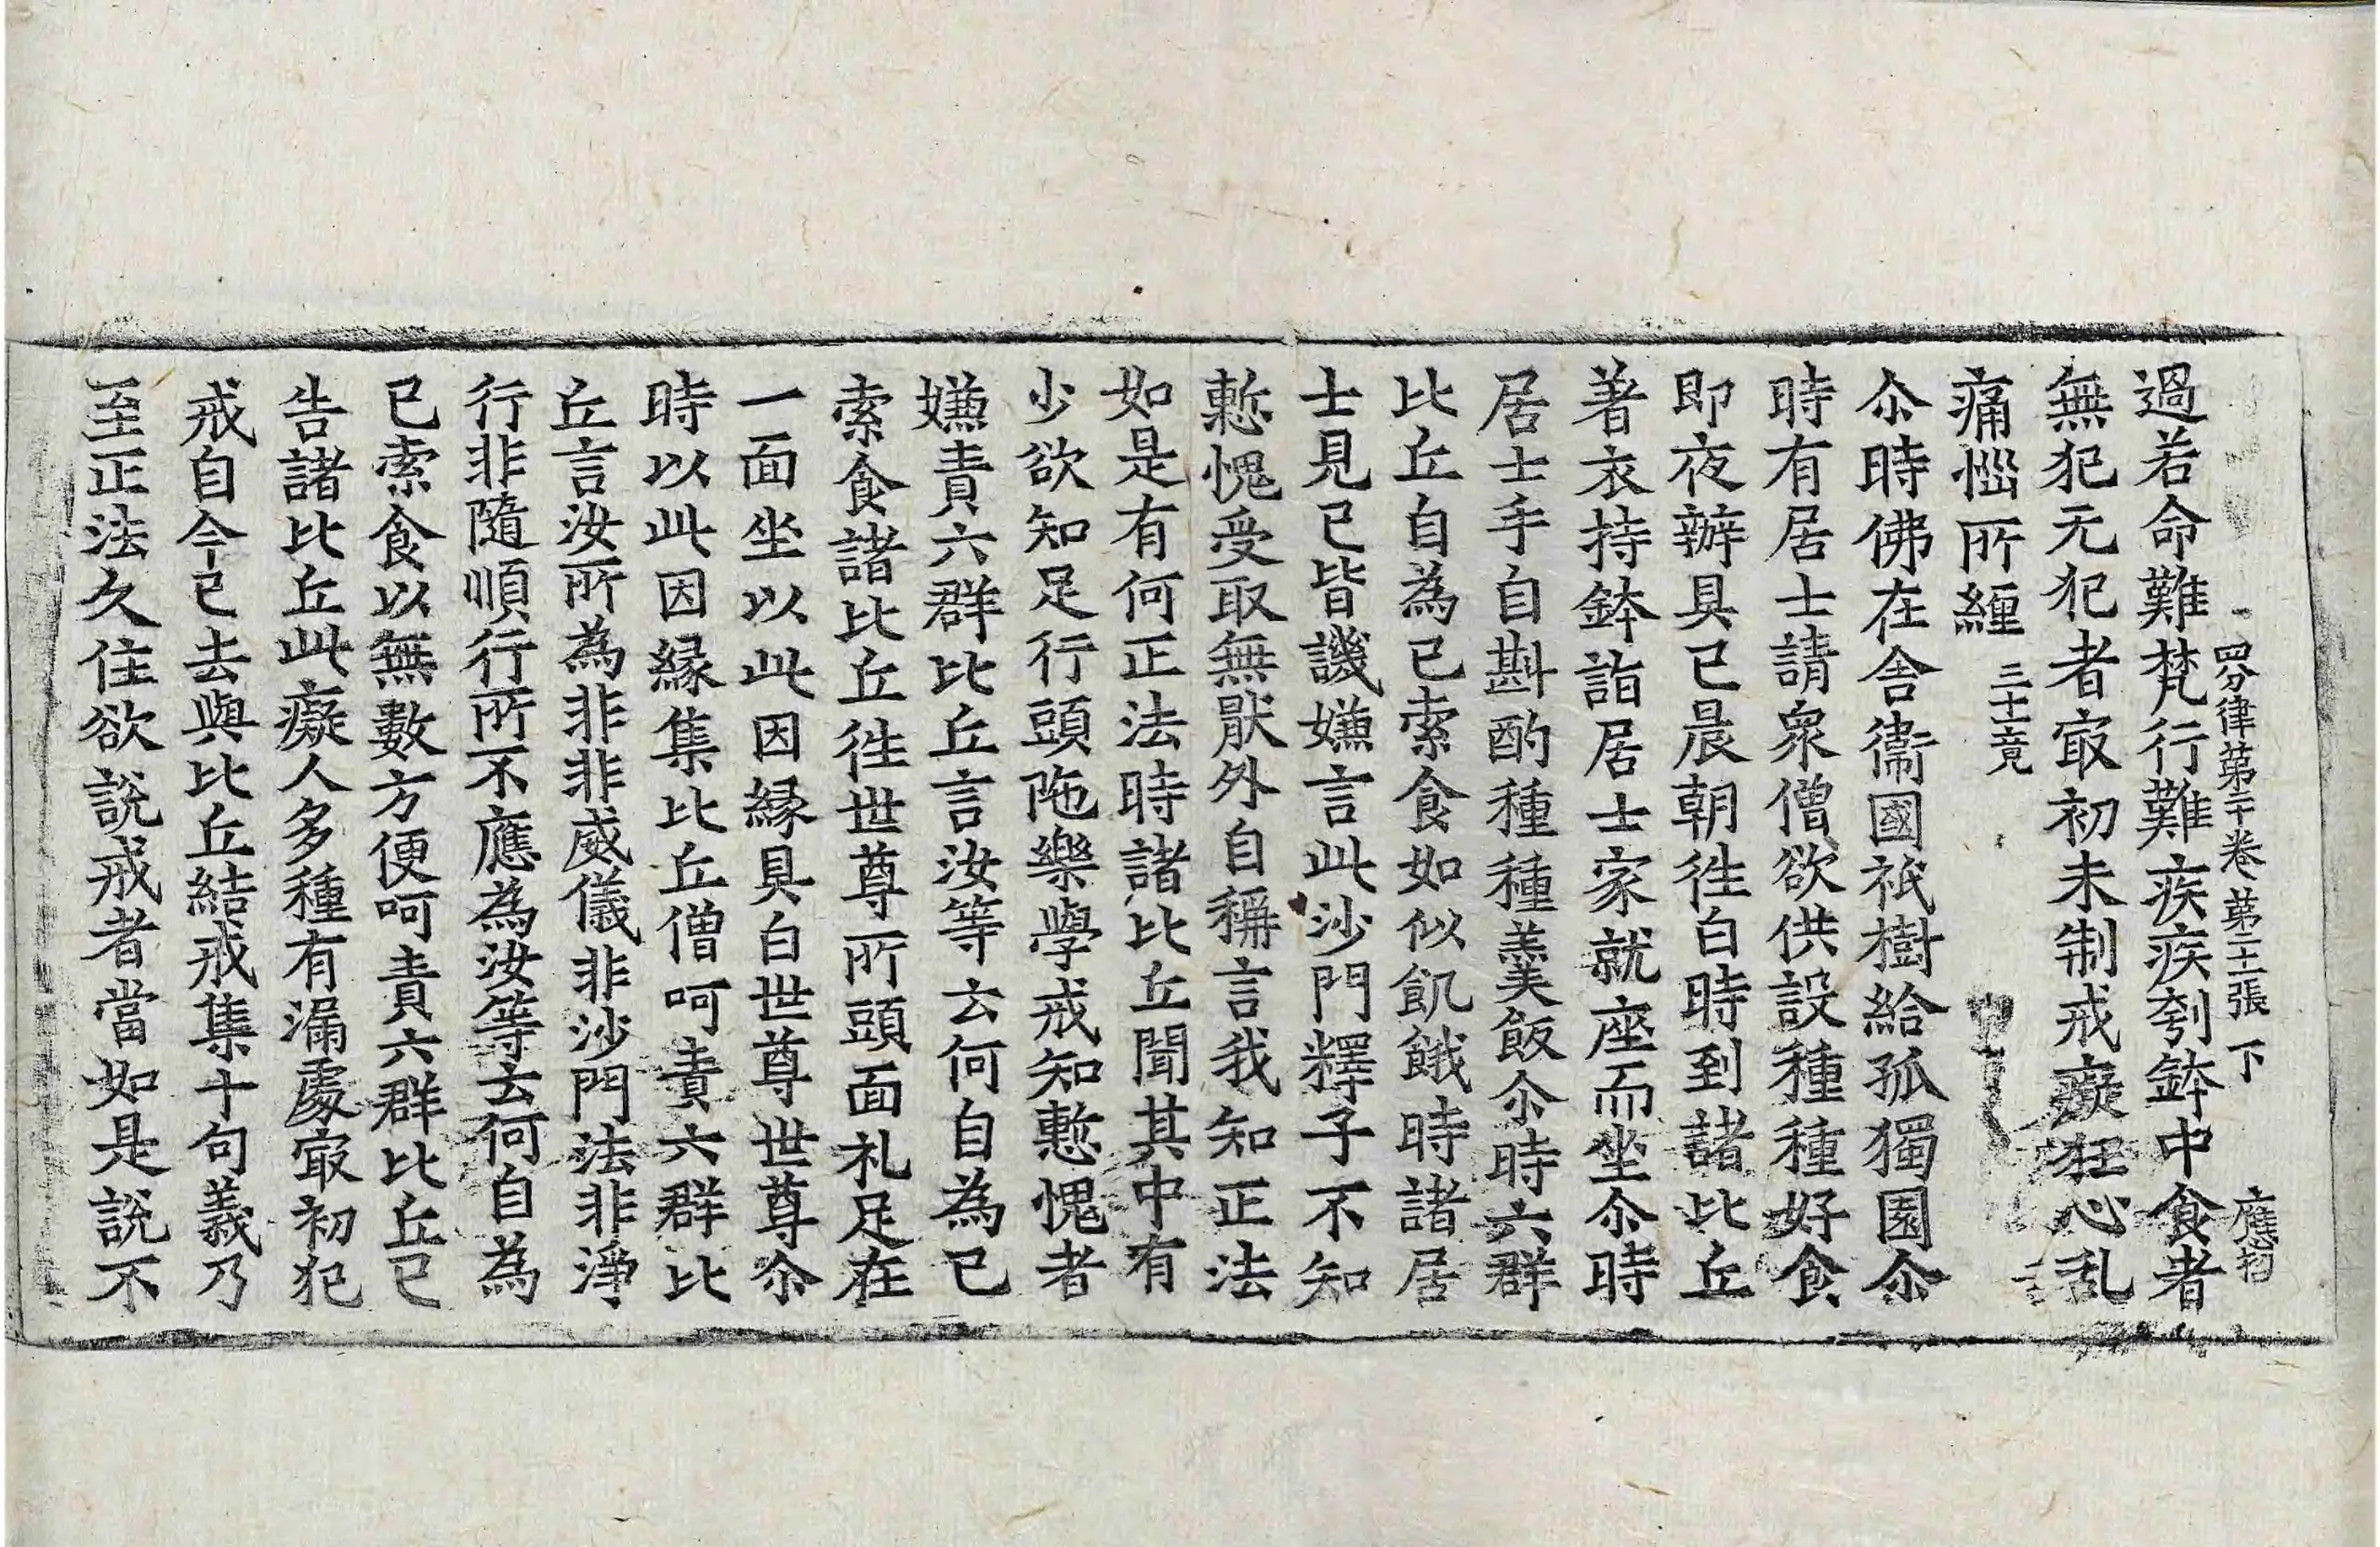 四分律第二十卷 第二十一張 下
過若命難梵行難疾疾刳鉢中食者
無犯无犯者㝡初未制戒癡狂心乱
痛惱所纏 三十竟
尒時佛在舍衛國祇樹給孤獨園尒
時有居士請衆僧欲供設種種好食
即夜辦具已晨朝徃白時到諸比丘
著衣持鉢詣居士家就座而坐尒時
居士手自斟酌種種羹飯尒時六群
比丘自為已索食如似飢餓時諸居
士見已皆譏嫌言此沙門釋子不知
慙愧受取無猒外自稱言我知正法
如是有何正法時諸比丘聞其中有
少欲知足行頭陁樂學戒知慙愧者
嫌責六群比丘言汝等云何自為已
索食諸比丘徃世尊所頭面礼足在
一面坐以此因緣具白世尊世尊尒
時以此因緣集比丘僧呵責六群比
丘言汝所為非非威儀非沙門法非淨
行非隨順行所不應為汝等云何自為
已索食以無數方便呵責六群比丘已
告諸比丘此癡人多種有漏處㝡初犯
戒自今已去與比丘結戒集十句義乃
至正法久住欲說戒者當如是說不